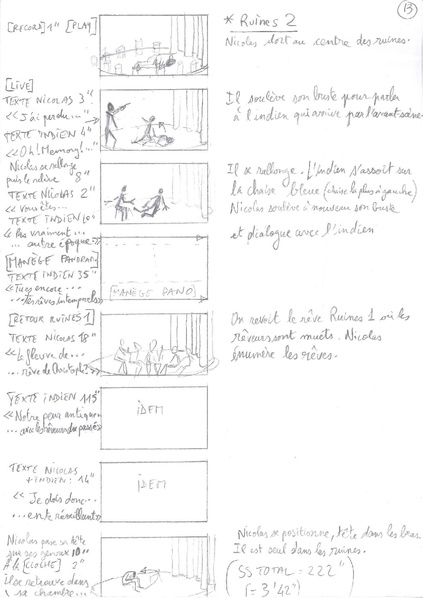 13
[RECORD] 1" [PLAY]
* Ruines 2
Nicolas dort au centre des ruines.
[LIVE]
TEXTE NICOLAS 3"
« J'ai perdu..."
TEXTE INDIEN 4"
« Oh! Memory!..."
Il soulève son buste pour parler
à l'indien qui arrive par l'avant-scène
Nicolas se rallonge
puis le relève 8"
TEXTE NICOLAS 2"
« Vous êtes...
TEXTE INDIEN
« Pas vraiment...
... autre époque »
Il se rallonge. L'Indien s'assoit sur
la chaise bleue (chaise la plus à gauche)
Nicolas soulève à nouveau son buste
et dialogue avec l'indien
TEXTE INDIEN 35"
« Tu es encore...
... tes rêves intemporels »
[MANÈGE PANO]
[RETOUR RUINES 1]
TEXTE NICOLAS 18"
« Le fleuve de...
On revoit le rêve Ruines 1 où les
rêveurs sont muets. Nicolas
énumère les rêves.
TEXTE INDIEN 115"
« Notre peur antique...
IDEM
TEXTE NICOLAS
+ INDIEN : 14"
« Je dois donc...
IDEM
Nicolas pose sa tête
sur ses genoux 10"
[CLOCHE] 2"
Il se retrouve dans
sa chambre...
Nicolas se positionne, tête dans les bras.
Il est seul dans les ruines.
SS TOTAL = 222"
= 3'42"